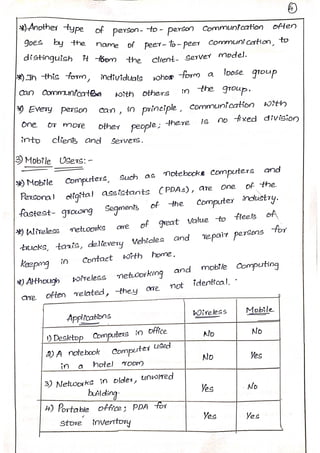 4
*) Another type of person-to-person communication often
goes by the name of peer-to-peer communication, to
distinguish it from the client-server model.
*) In this form, individuals who form a loose group
can communicate with others in the group.
*) Every person can, in principle, communication with
one or more other people; there is no fixed division
into clients and servers.
3) Mobile Users:-
*) Mobile computers, such as notebook computers and
Personal digital assistants (PDAs), are one of the
fastest-growing segments of the computer industry.
*) Wireless networks are of great value to fleets of
trucks, taxis, delievery vehicles and repair persons for
keeping in contact with home.
*) Although wireless networking and mobile computing
are often related, they are not identical.
Applications Wireless Mobile
1) Desktop computers in office No No
2) A notebook computer used
in a hotel room No Yes
3) Networks in older, unwired
building Yes No
4) Portable office; PDA for
store inventory Yes Yes